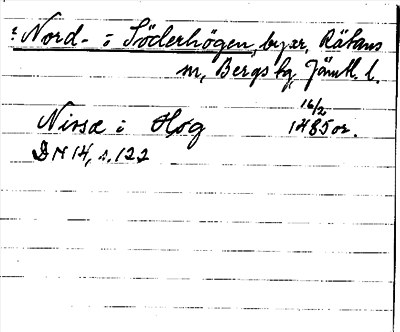 : Nord- : Söderhögen, byar, Rätans
sn, Bergs tg, Jämtl. l.
16/2
Nisse i Hog 1485 or.
DN 14, s. 122